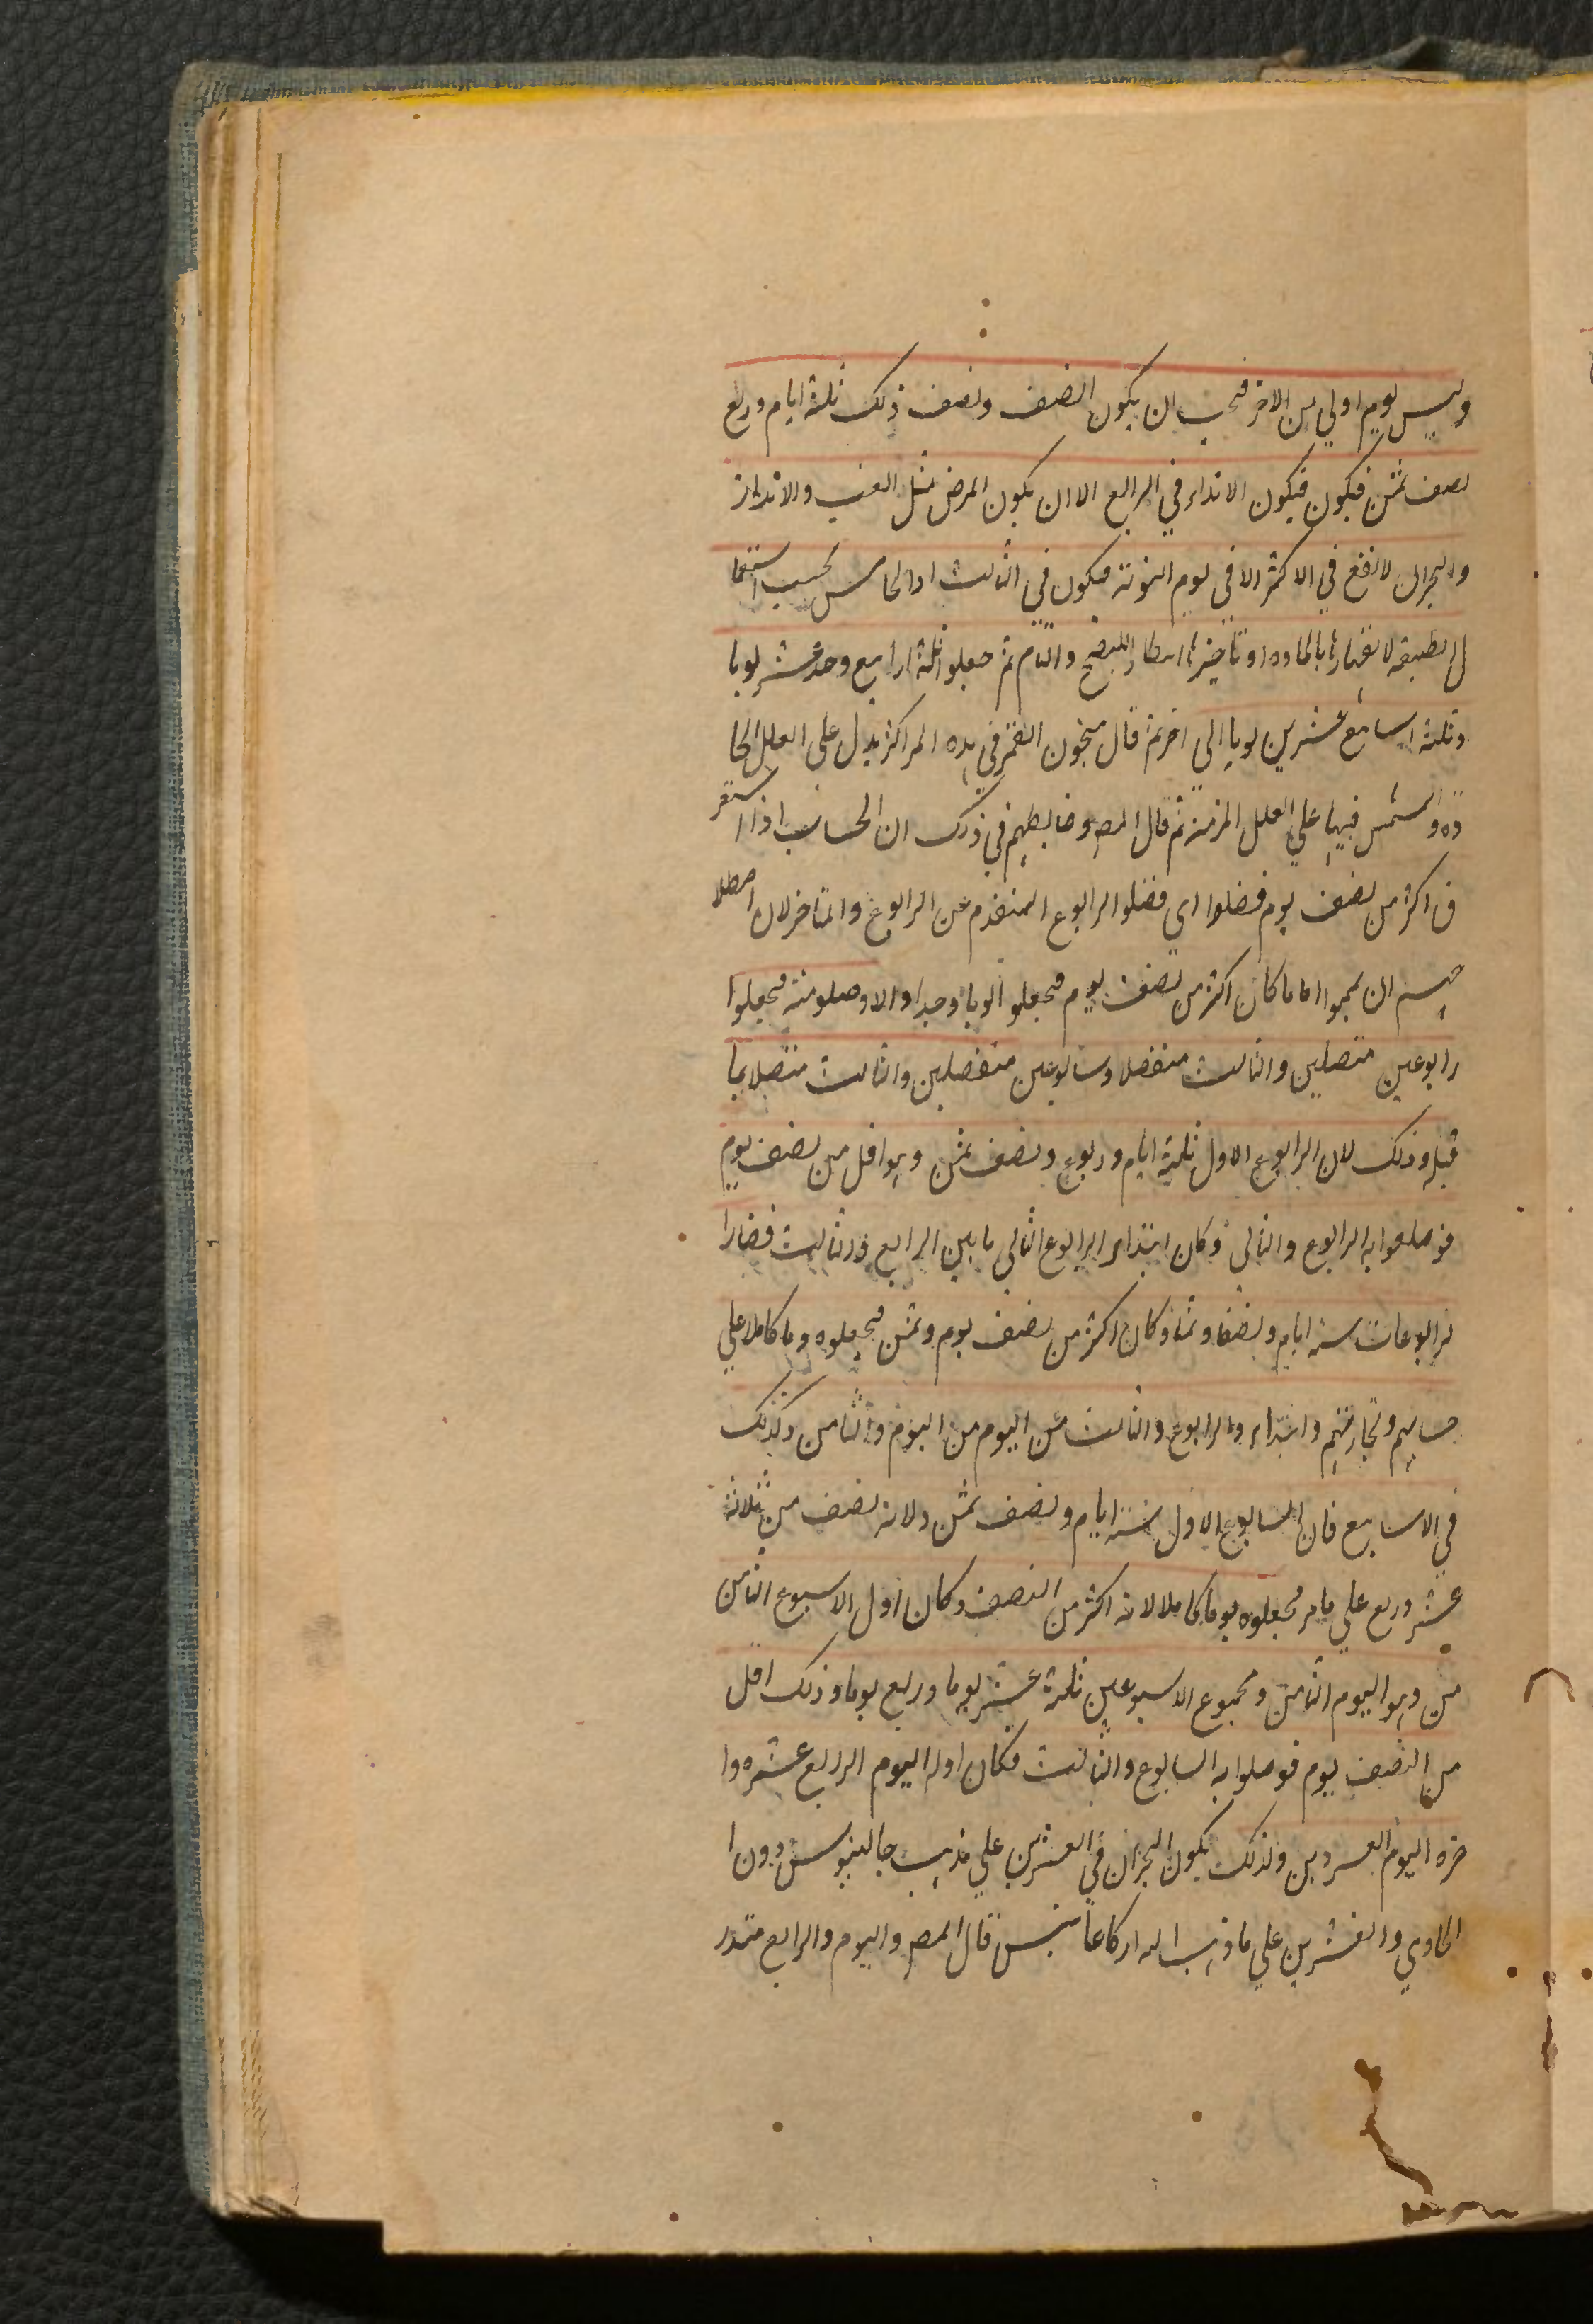 وليس يوم اولي من الاخر فيجب ان يكون النصف ونصف ذلك ثلثة ايام وربع
نصف ثمن فيكون فيكون الانذار في الرابع الا ان يكون المرض مثل الغب والانذار
والبحران لا يقع في الاكثر الا في يوم النوبة فيكون في الثالث او الخامس بحسب استعجا
ل الطبيعة لا تغتارا بالمادة او تأخيرا انتظارا للنضج والتام ثم جعلوا ثلثة ارابيع وحد عشر يوما
وثلثة اسابيع عشرين يوما الي اخر ثم قال منجمون القمر في هذه المراكز يدل علي العلل الحا
دة والشمس فيها علي العلل المزمنة ثم قال المص وضابطهم في ذلك ان الحساب اذا استغر
ق اكثر من نصف يوم فصلوا اي فصلوا الرابوع المتقدم عن الرابوع والمتاخر لان اصطلا
حهم ان يجبروا اما ما كان اكثر من نصف يوم فيجعلو الويا وحدا والا وصلو منه فيجعلوا
رابوعين متصلين والثالث منفصلا وسابوعين منفصلين والثالث متصلا بما
قبله وذلك لان الرابوع الاول ثلثة ايام وربوع ونصف ثمن وهو اقل من نصف يوم
فوصلموا به الرابوع والثاني وكان ابتداء الرابوع الثاني ما بين الرابع والثالث فصارا
لرابوعات ستة ايام ونصفا وثمنا وكان اكثر من نصف يوم وثمن فيجعلوه وما كاملا علي
حسابهم وتجاربتهم وابتداء والرابوع والثالث من اليوم من اليوم والثامن وكذلك
في الاسابيع فان السابوع الاول ستة ايام ونصف ثمن ولانه نصف من ثلاثة
عشر وربع علي ما مر فجعلوه يوما كاملا لانه اكثر من النصف وكان اول الاسبوع الثامن
من وهو اليوم الثامن ومجموع الاسبوعين ثلثة عشر يوما وربع يوما وذلك اقل
من النصف يوم فوصلوا به السابوع والثالث فكان اوله اليوم الرابع عشره وا
خره اليوم العسردين ولذلك يكون البحران في العشرين علي مذهب جالينوس دون ا
الحادي والعشرين علي ما ذهب اليه اركاغانيس قال المص واليوم والرابع منذر